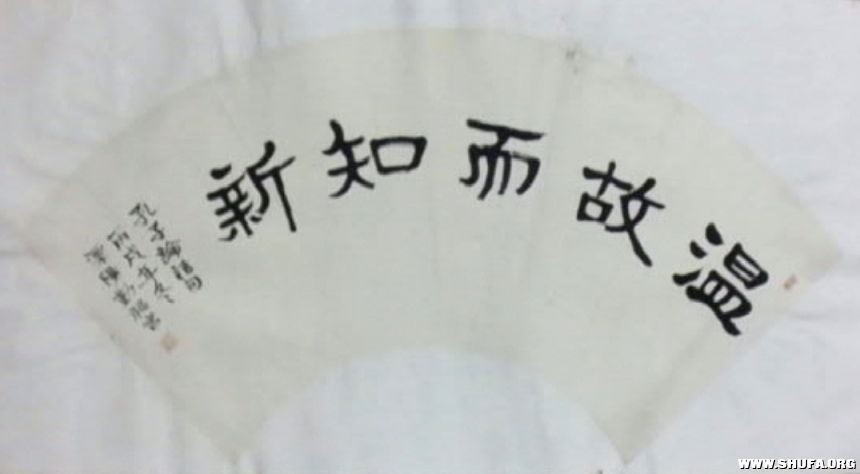 温故而知新
孔子論語句
丙戌年冬
WWW.SHUFA.ORG